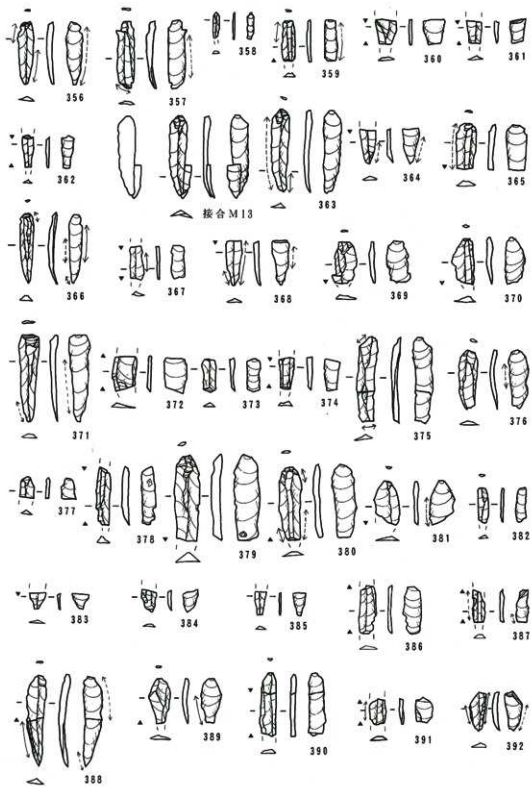 356 357 358 359 360 361
362 接合M13 363 364 365
366 367 368 369 370
371 372 373 374 375 376
377 378 379 380 381 382
383 384 385 386 387
388 389 390 391 392